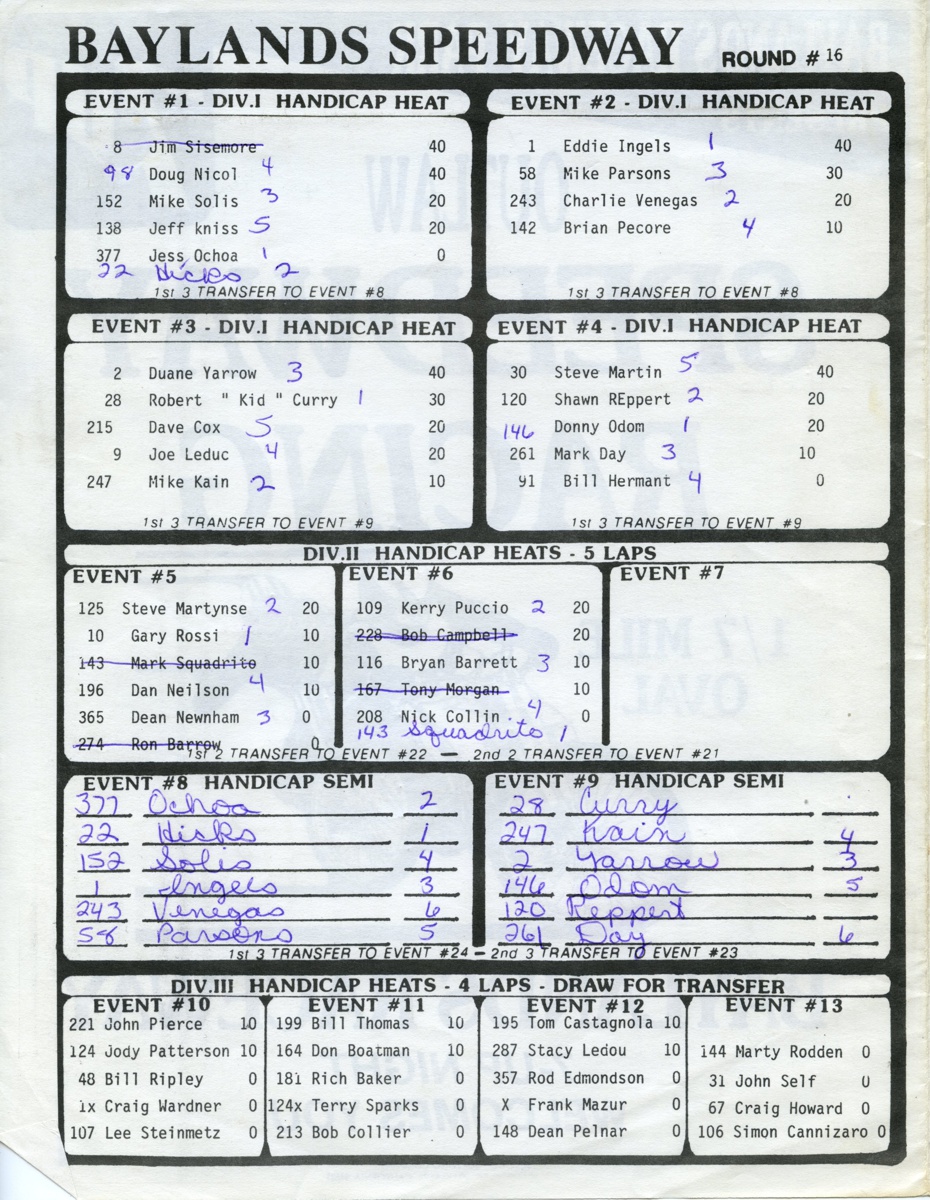 BAYLANDS SPEEDWAY ROUND # 16
EVENT #1 - DIV.I HANDICAP HEAT
8 Jim Sisemore 40
98 Doug Nicol 4 40
152 Mike Solis 3 20
138 Jeff kniss 5 20
377 Jess Ochoa 1 0
22 Hicks 2
1st 3 TRANSFER TO EVENT #8
EVENT #2 - DIV.I HANDICAP HEAT
1 Eddie Ingels 1 40
58 Mike Parsons 3 30
243 Charlie Venegas 2 20
142 Brian Pecore 4 10
1st 3 TRANSFER TO EVENT #8
EVENT #3 - DIV.I HANDICAP HEAT
2 Duane Yarrow 3 40
28 Robert " Kid " Curry 1 30
215 Dave Cox 5 20
9 Joe Leduc 4 20
247 Mike Kain 2 10
1st 3 TRANSFER TO EVENT #9
EVENT #4 - DIV.I HANDICAP HEAT
30 Steve Martin 5 40
120 Shawn REppert 2 20
146 Donny Odom 1 20
261 Mark Day 3 10
91 Bill Hermant 4 0
1st 3 TRANSFER TO EVENT #9
DIV.II HANDICAP HEATS - 5 LAPS
EVENT #5
125 Steve Martynse 2 20
10 Gary Rossi 1 10
143 Mark Squadrito 10
196 Dan Neilson 4 10
365 Dean Newnham 3 0
274 Ron Barrow 0
EVENT #6
109 Kerry Puccio 2 20
228 Bob Campbell 20
116 Bryan Barrett 3 10
167 Tony Morgan 10
208 Nick Collin 4 0
143 Squadrito 1
EVENT #7
1st 2 TRANSFER TO EVENT #22 — 2nd 2 TRANSFER TO EVENT #21
EVENT #8 HANDICAP SEMI
377 Ochoa 2
22 Hicks 1
152 Solis 4
1 Ingels 3
243 Venegas 6
58 Parsons 5
EVENT #9 HANDICAP SEMI
28 Curry
247 Kain 4
2 Yarrow 3
146 Odom 5
120 Reppert
261 Day 6
1st 3 TRANSFER TO EVENT #24 — 2nd 3 TRANSFER TO EVENT #23
DIV.III HANDICAP HEATS - 4 LAPS - DRAW FOR TRANSFER
EVENT #10
221 John Pierce 10
124 Jody Patterson 10
48 Bill Ripley 0
1x Craig Wardner 0
107 Lee Steinmetz 0
EVENT #11
199 Bill Thomas 10
164 Don Boatman 10
181 Rich Baker 0
124x Terry Sparks 0
213 Bob Collier 0
EVENT #12
195 Tom Castagnola 10
287 Stacy Ledou 10
357 Rod Edmondson 0
7 Frank Mazur 0
148 Dean Pelnar 0
EVENT #13
144 Marty Rodden 0
31 John Self 0
67 Craig Howard 0
106 Simon Cannizaro 0